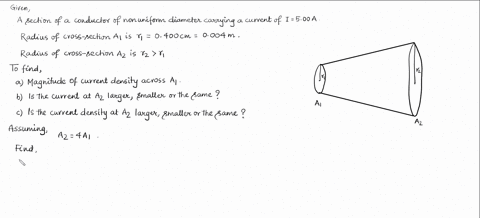 Given,
A section of a conductor of nonuniform diameter carrying a current of I = 5.00 A.
Radius of cross-section A₁ is r₁ = 0.400 cm = 0.004 m.
Radius of cross-section A₂ is r₂ > r₁
To find,
a) Magnitude of current density across A₁.
b) Is the current at A₂ larger, smaller or the same ?
c) Is the current density at A₂ larger, smaller or the same ?
Assuming,
A₂ = 4A₁ .
Find,
r₁
r₂
A₁
A₂